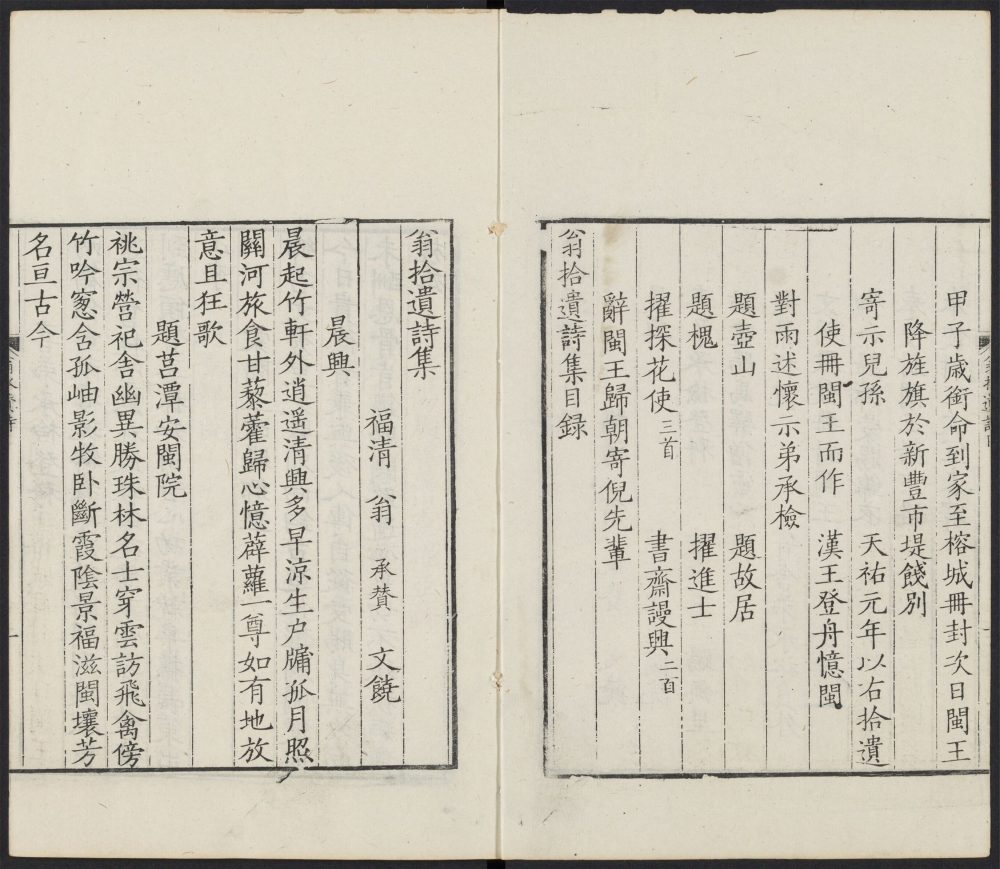 甲子歲銜命到家至榕城冊封次日閩王
降旌旗於新豐市堤餞別
寄示兒孫　天祐元年以右拾遺
使冊閩王而作　漢王登舟憶閩
對雨述懷示弟承檢
題壺山　題故居
題槐　擢進士
擢探花使三首　書齋謾興二首
辭閩王歸朝寄倪先輩
翁拾遺詩集目錄
翁拾遺詩集
福清　翁　承贊　文饒
晨興
晨起竹軒外逍遥清興多早涼生户牖孤月照
關河旅食甘藜藿歸心憶薜蘿一尊如有地放
意且狂歌
題莒潭安閩院
祧宗營祀舍幽異勝珠林名士穿雲訪飛禽傍
竹吟窻含孤岫影牧卧斷霞陰景福滋閩壤芳
名亘古今
一